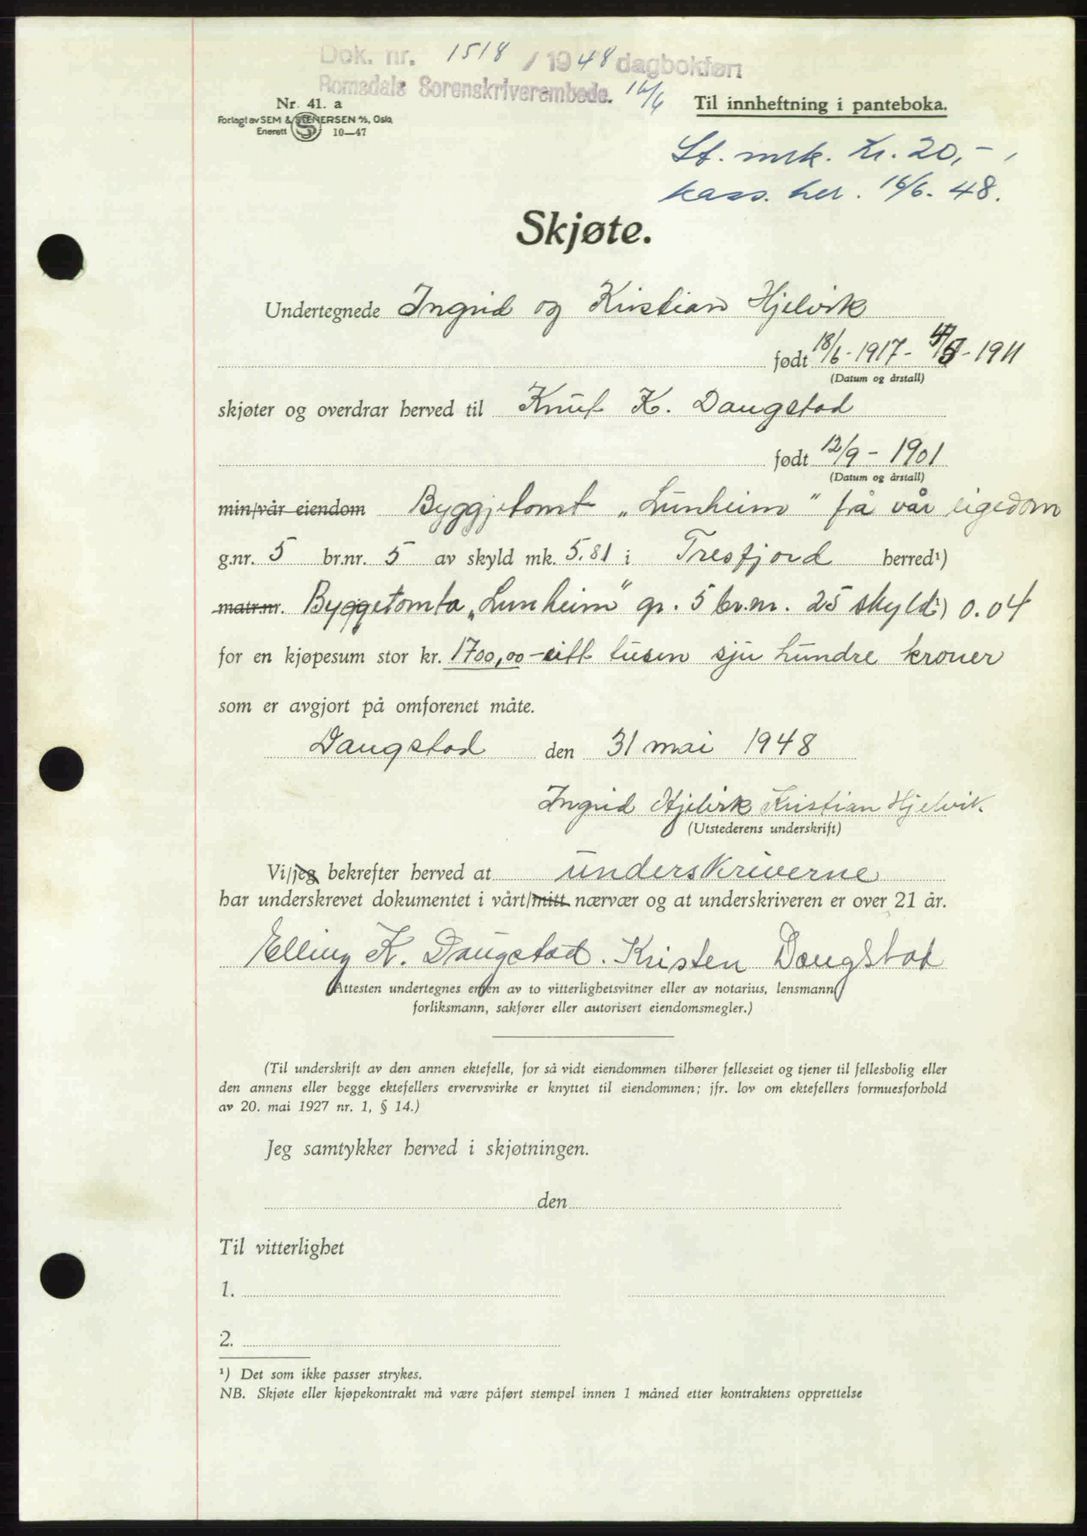 Dok. nr. 1518 / 1948 dagbokført
Romsdals Sorenskriverembede. 16/6
Nr. 41. a
Forlagt av SEM & STENERSEN A/S, Oslo
Enerett 10—47
Til innheftning i panteboka.
St. mrk. kr. 20,-
kass. her. 16/6. 48.
Skjøte.
Undertegnede Ingrid og Kristian Hjelvik
født 18/6-1917- 4/5-1911
(Datum og årstall)
skjøter og overdrar herved til Knut K. Daugstad
født 12/9-1901
(Datum og årstall)
min/vår eiendom Byggjetomt „Lunheim" frå vår eigedom
g.nr. 5 br.nr. 5 av skyld mk. 5.81 i Tresfjord herred¹)
matr.nr. Byggetomta „Lunheim" gr. 5 br.nr. 25 skyld¹) 0.04
for en kjøpesum stor kr. 1700,00 - eitt tusen sju hundre kroner
som er avgjort på omforenet måte.
Daugstad den 31 mai 1948
Ingrid Hjelvik Kristian Hjelvik.
(Utstederens underskrift)
Vi/jeg bekrefter herved at underskriverne
har underskrevet dokumentet i vårt/mitt nærvær og at underskriveren er over 21 år.
Elling K. Daugstad. Kristen Daugstad
(Attesten undertegnes enten av to vitterlighetsvitner eller av notarius, lensmann,
forliksmann, sakfører eller autorisert eiendomsmegler.)
(Til underskrift av den annen ektefelle, for så vidt eiendommen tilhører felleseiet og tjener til fellesbolig eller
den annens eller begge ektefellers ervervsvirke er knyttet til eiendommen; jfr. lov om ektefellers formuesforhold
av 20. mai 1927 nr. 1, § 14.)
Jeg samtykker herved i skjøtningen.
den
Til vitterlighet
1.
2.
¹) Det som ikke passer strykes.
NB. Skjøte eller kjøpekontrakt må være påført stempel innen 1 måned etter kontraktens opprettelse